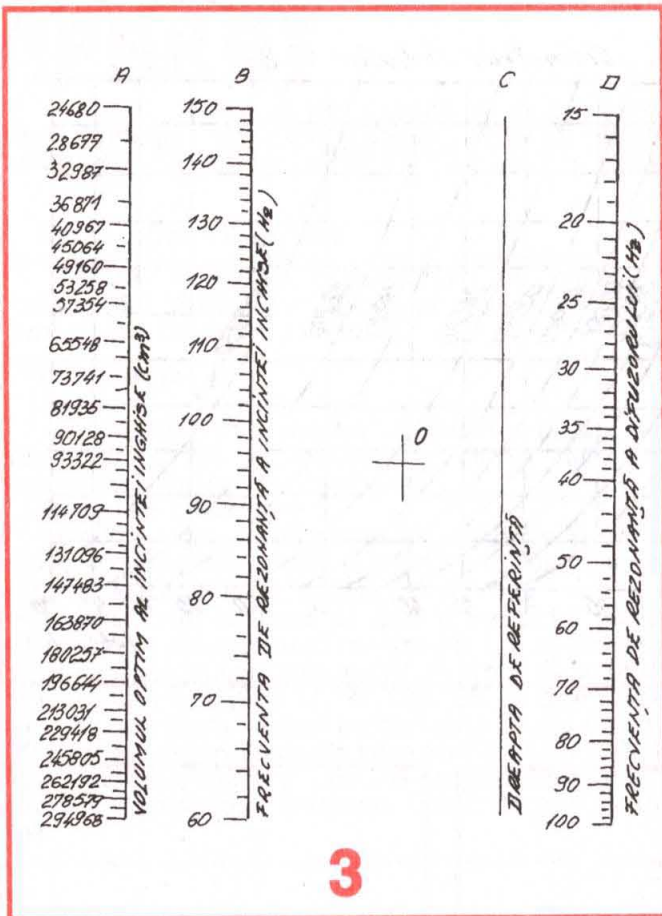 A B C D
24680
28677
32987
36871
40967
45064
49160
53258
57354
65548
73741
81935
90128
93322
114709
131096
147483
163870
180257
196644
213031
229418
245805
262192
278579
294968
VOLUMUL OPTIM AL INCINTEI INCHISE (cm3)
150
140
130
120
110
100
90
80
70
60
FRECVENTA DE REZONANTĂ A INCINTEI INCHISE (Hz)
O
DREAPTA DE REFERINȚĂ
15
20
25
30
35
40
50
60
70
80
90
100
FRECVENTA DE REZONANȚĂ A DIFUZORULUI (Hz)
3